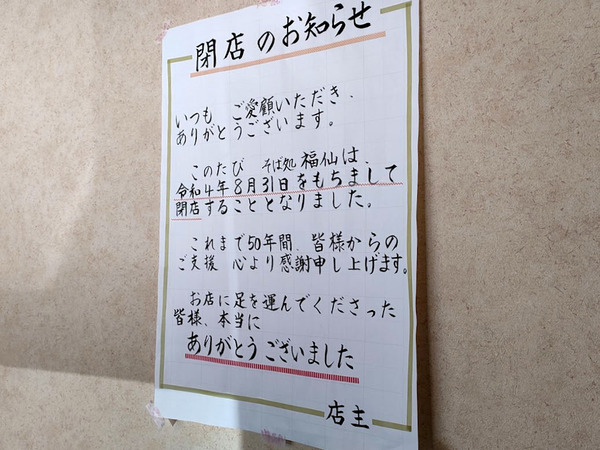 閉店のお知らせ
いつも ご愛顧いただき、
ありがとうございます。
このたび そば処 福仙は、
令和4年8月31日をもちまして
閉店することとなりました。
これまで50年間、皆様からの
ご支援 心より感謝申し上げます。
お店に足を運んでくださった
皆様、本当に
ありがとうございました
店主